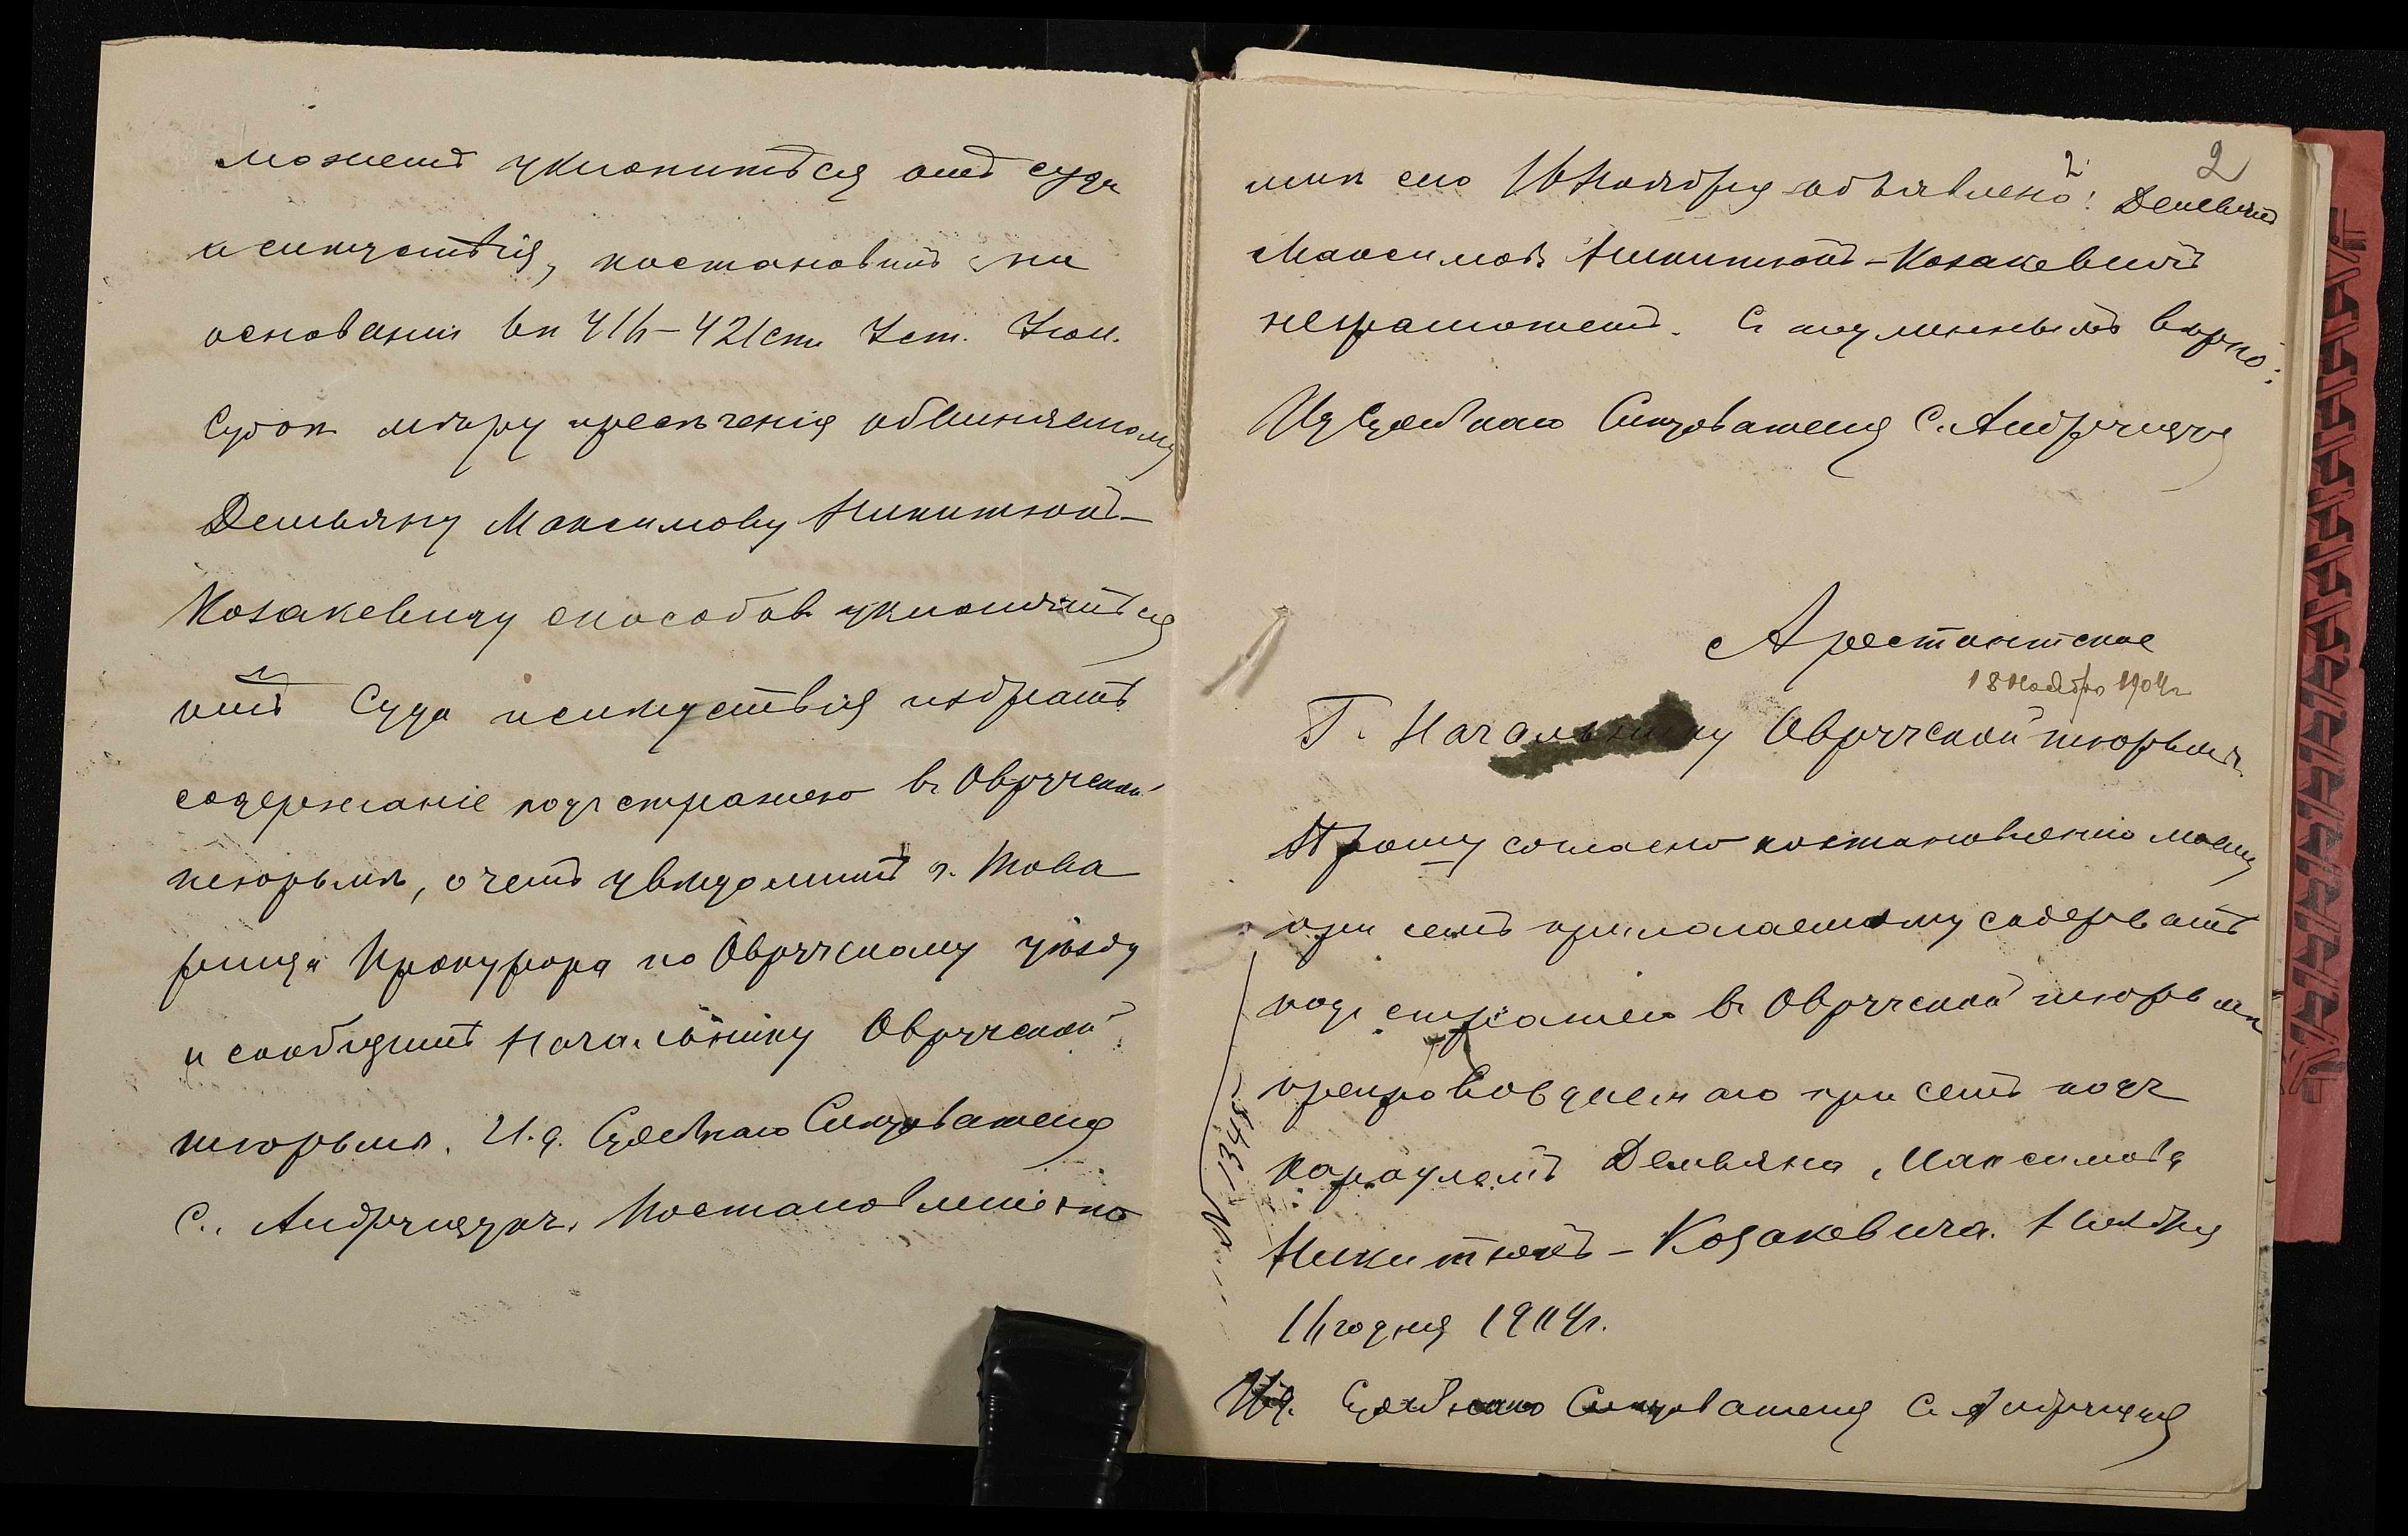 можетъ уклонитъся отъ суда
и слѣдствія, постановилъ: на
основаніи вп 416-421 ст. Уст. Угол.
Судоп мѣру пресѣченія обвиняемому
Демьяну Максимову Никитюкъ-
Козакевичу способовъ уклонятъся
отъ Суда и слѣдствія избрать
содержаніе подъ стражею въ Овручской
тюрьмѣ, о чемъ увѣдомить г. Това
рища Прокурора по Овручскому уѣзду
и сообщить Начальнику Овручской
тюрьмы. И. д. Судебнаго Слѣдователя
С. Постановленіе это
2 2
мнѣ сего 16 Ноября объявлено: Демьянъ
Максимовъ Никитюкъ-Козакевичъ
неграмотенъ. Съ подлиннымъ вѣрно:
Ид Судебнаго Слѣдователя С.
Арестантское
18 Ноября 1904 г
Г. Начальнику Овручской тюрьмы
Прошу согласно постановленію моему
при семъ прилагаемому содержать
подъ стражею въ Овручской тюрьмѣ
препровождаемаго при семъ подъ
карауломъ Демьяна Максимова
Никитюкъ-Козакевича. Ноября
16 дня 1904 г.
Ид. Судебнаго Слѣдователя С.
№ 1345